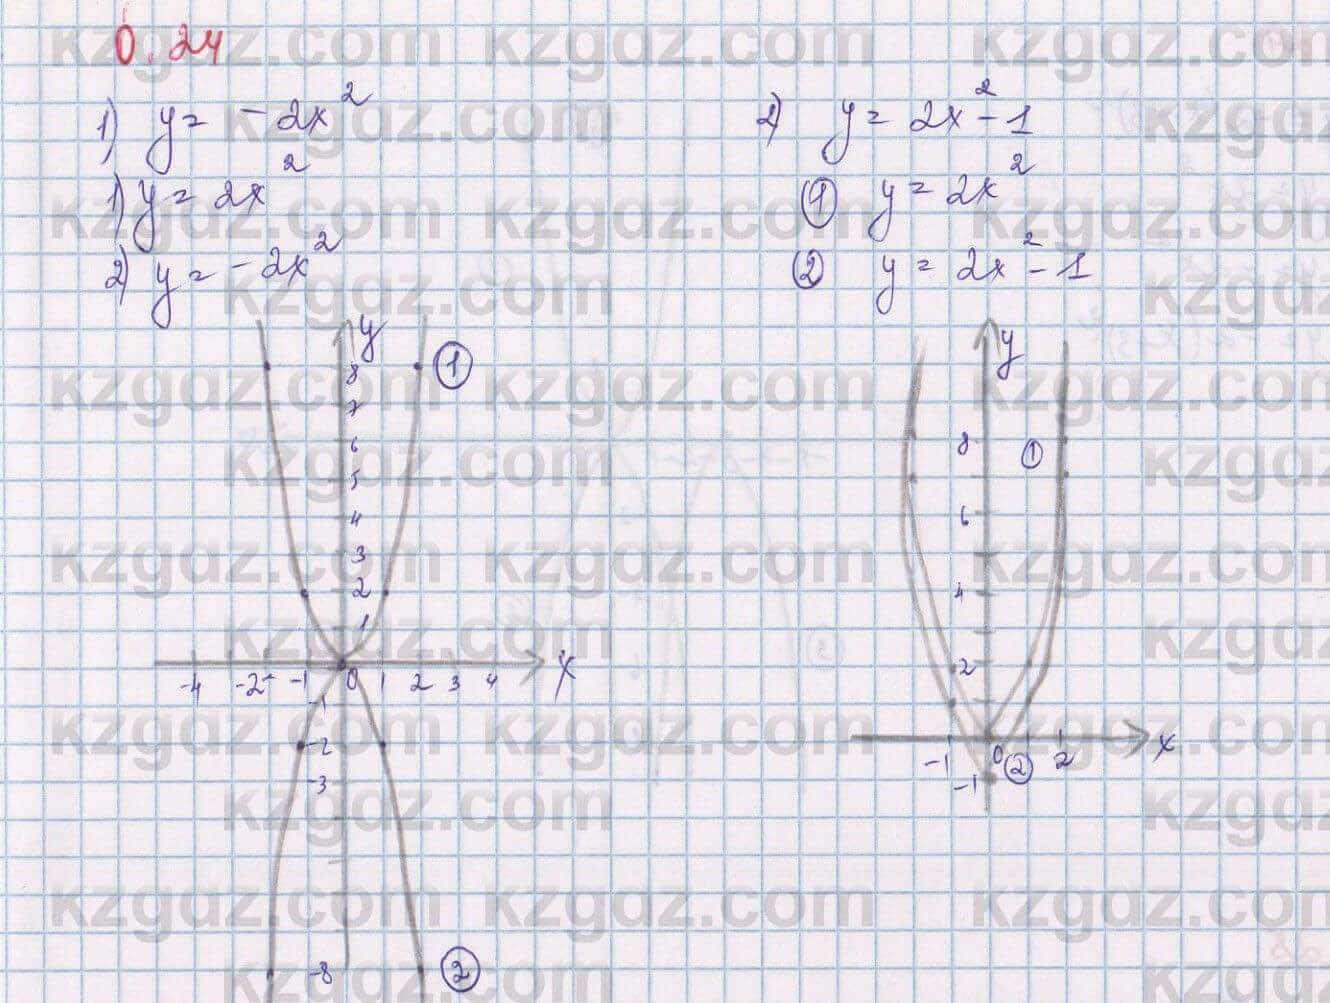 0.24
1) y = -2x²
1) y = 2x²
2) y = -2x²
y
8
7
6
5
4
3
2
1
①
-4 -2 -1 0 1 2 3 4 x
-1
-2
-3
-8
②
2) y = 2x² - 1
① y = 2x²
② y = 2x² - 1
y
8
①
6
4
2
-1 0 ② 2 x
-1
kzgdz.com